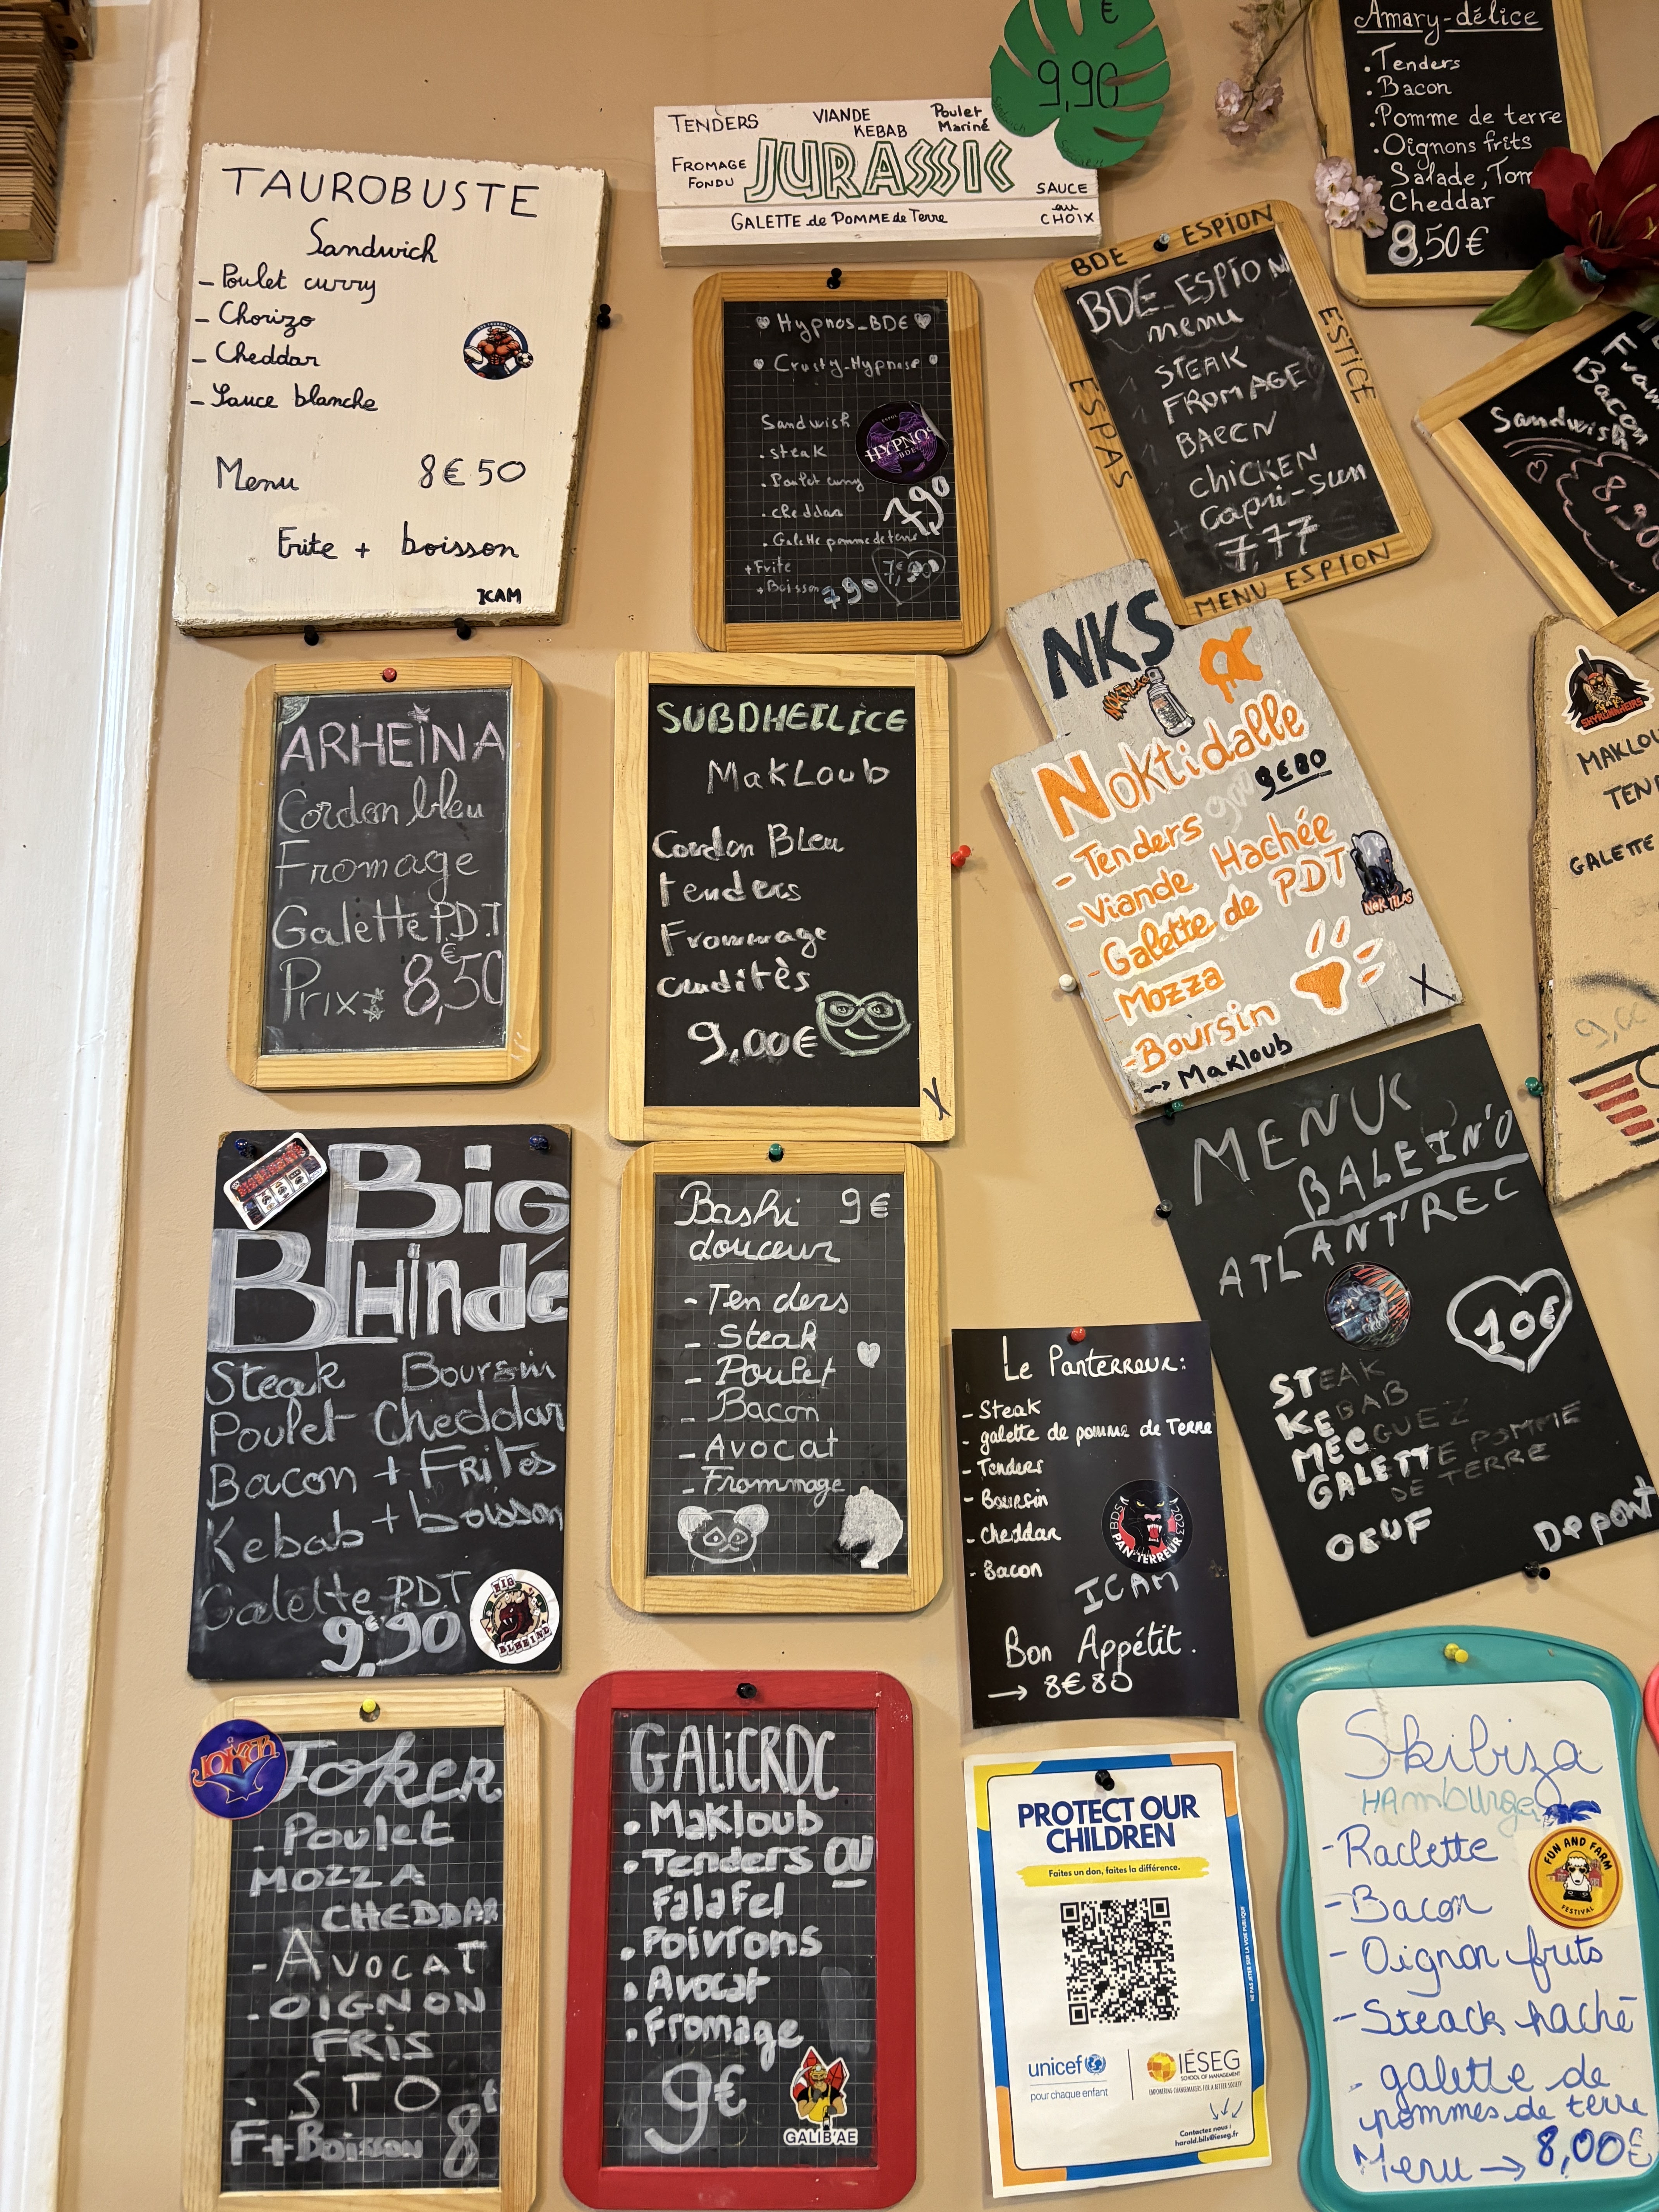 TAUROBUSTE
Sandwich
- Poulet curry
- Chorizo
- Cheddar
- Sauce blanche
Menu 8€50
Frite + boisson
ICAM
€
9,90
TENDERS VIANDE KEBAB Poulet Mariné
FROMAGE FONDU JURASSIC SAUCE au CHOIX
GALETTE de POMME de Terre
Amary-délice
. Tenders
. Bacon
. Pomme de terre
. Oignons frits
Salade, Tom
. Cheddar
8,50€
Hypnos_BDE
Crusty_Hypnose
Sandwish
. steak
. Poulet curry
. cheddar
. Galette pomme de terre
7,90
+ Frite
+ Boisson 790
HYPNOS
BDE
BDE ESPION
ESTICE
ESPAS
MENU ESPION
BDE_ESPION
menu
STEAK
FROMAGE
BAECN
CHICKEN
+ Capri-sun
7,77
Bacon
Sandwish
8,90
ARHEINA
Cordon bleu
Fromage
Galette P.D.T
Prix: 8,50€
SUBDHEILICE
MaKLoub
Cordon Bleu
tenders
Frommage
crudités
9,00€
X
NKS
NOKTILAS
Noktidalle
9€80
- Tenders
- Viande Hachée
- Galette de PDT
- Mozza
- Boursin
→ Makloub
NOKTILAS
X
SKYRUNHEIRS
MAKLOU
TEND
GALETTE
9,00
BIG
BLHindé
Steak Boursin
Poulet Cheddar
Bacon + Frites
Kebab + boisson
Galette P.D.T
9€90
BIG
BLHEIND
Bashi 9€
douceur
- Tenders
- Steak
- Poulet
- Bacon
- Avocat
- Frommage
Le Panterreur:
- Steak
- galette de pomme de Terre
- Tenders
- Boursin
- Cheddar
- Bacon
BDS PAN'TERREUR 2023
ICAM
Bon Appétit.
→ 8€80
MENUS
BALEIN'O
ATLANT'REC
10€
STEAK
KEBAB
MERGUEZ
GALETTE POMME
DE TERRE
OEUF
Dépont
JOKER
Joker
- Poulet
MOZZA
CHEDDAR
- AVOCAT
. OIGNON
FRIS
. STO
F+Boisson 8€
GALiCROC
. Makloub
. Tenders OU
Falafel
. Poivrons
. Avocat
. Fromage
9€
GALIB'AE
PROTECT OUR
CHILDREN
Faites un don, faites la différence.
NE PAS JETER SUR LA VOIE PUBLIQUE
unicef
pour chaque enfant
IÉSEG
SCHOOL OF MANAGEMENT
EMPOWERING CHANGEMAKERS FOR A BETTER SOCIETY
Contactez nous !
harold.bils@ieseg.fr
Skibiza
Hamburger
- Raclette
- Bacon
- Oignon fruts
- Steack haché
- galette de
pommes de terre
Menu → 8,00€
FUN AND FARM
FESTIVAL